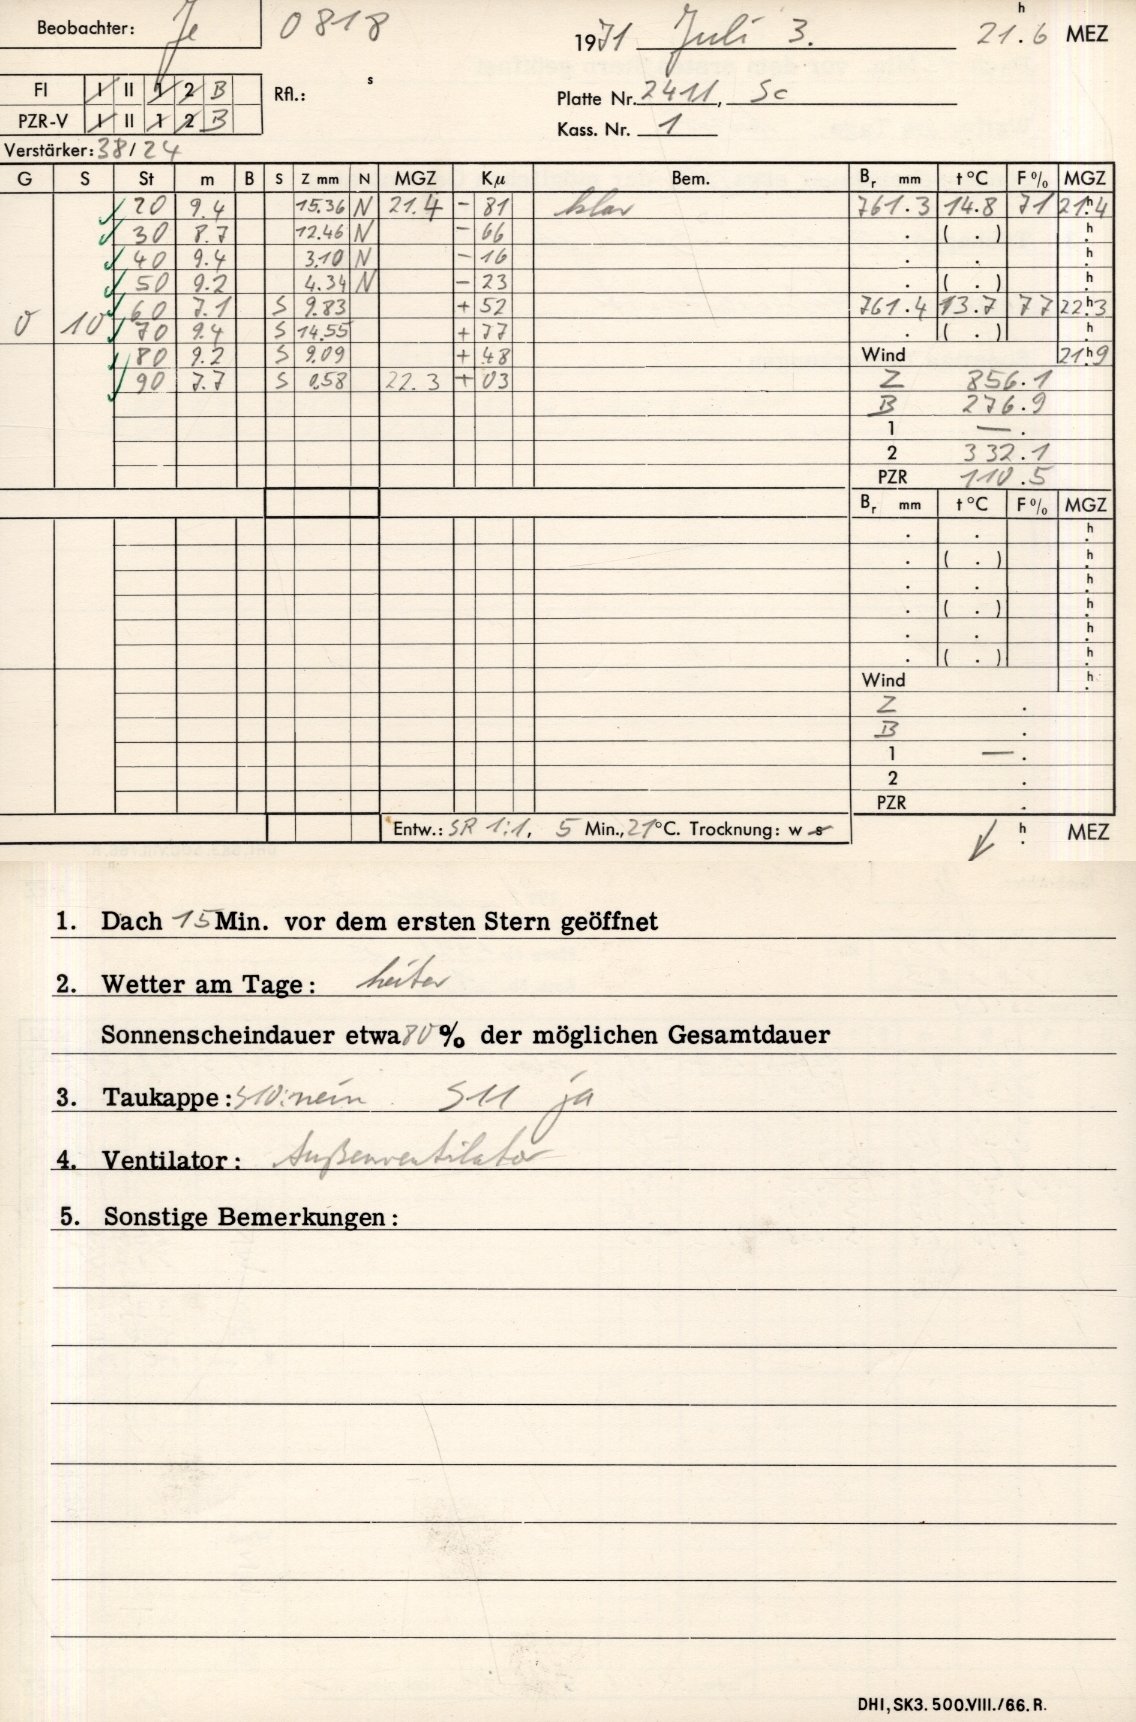 Beobachter: Je 0818 1971 Juli 3. 21.6 h MEZ
FI I II 1 2 B Rfl.: s Platte Nr. 2411, Sc
PZR-V I II 1 2 B Kass. Nr. 1
Verstärker: 38/24
G S St m B S Z mm N MGZ Kµ Bem. Br mm t °C F % MGZ
20 9.4 15.36 N 21.4 - 81 klar 761.3 14.8 71 21h4
30 8.7 12.46 N - 66 . ( . ) h
40 9.4 3.10 N - 16 . . h
50 9.2 4.34 N - 23 . ( . ) h
0 10 60 7.1 S 9.83 + 52 761.4 13.7 77 22h3
70 9.4 S 14.55 + 77 . ( . ) h
80 9.2 S 9.09 + 48 Wind 21h9
90 7.7 S 0.58 22.3 + 03 Z 856.1
B 276.9
1 — .
2 332.1
PZR 110.5
Br mm t °C F % MGZ
. . h
. ( . ) h
. . h
. ( . ) h
. . h
. ( . ) h
Wind h
Z .
B .
1 — .
2 .
PZR .
Entw.: SR 1:1, 5 Min., 21°C. Trocknung: w s h MEZ
1. Dach 15 Min. vor dem ersten Stern geöffnet
2. Wetter am Tage: heiter
Sonnenscheindauer etwa 80 % der möglichen Gesamtdauer
3. Taukappe: S10: nein S11 ja
4. Ventilator: Außenventilator
5. Sonstige Bemerkungen:
DHI, SK3. 500.VIII./66. R.